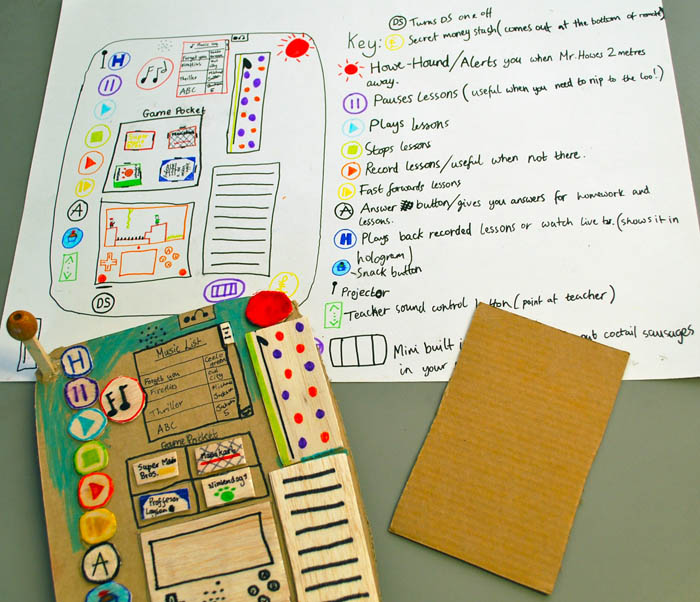 DS Turns DS on & off
Key: £ Secret money stash (comes out at the bottom of remote)
Howe-Hound/Alerts you when Mr. Howes 2 metres
away.
Pauses Lessons (useful when you need to nip to the loo!)
Plays lessons
Stops lessons
Record lessons/useful when not there.
Fast forwards lessons
A Answer button/gives you answers for homework and
lessons.
H Plays back recorded lessons or watch live tv. (shows it in
hologram)
Snack button
Projector
Teacher sound control button (point at teacher)
Mini built i coctail sausages
in your
H
Music List
Forget you
Fireflies
Thriller
ABC
Game Pocket
A
DS
£
H
Music List
Forget you
Fireflies
Thriller
ABC
CeeLo
Green
Owl
City
Michael
Jackson
Jackson
5
Game Pocket
Super Mario
Bros.
Mariokart
Proffesor
Layton
Nintendogs
A